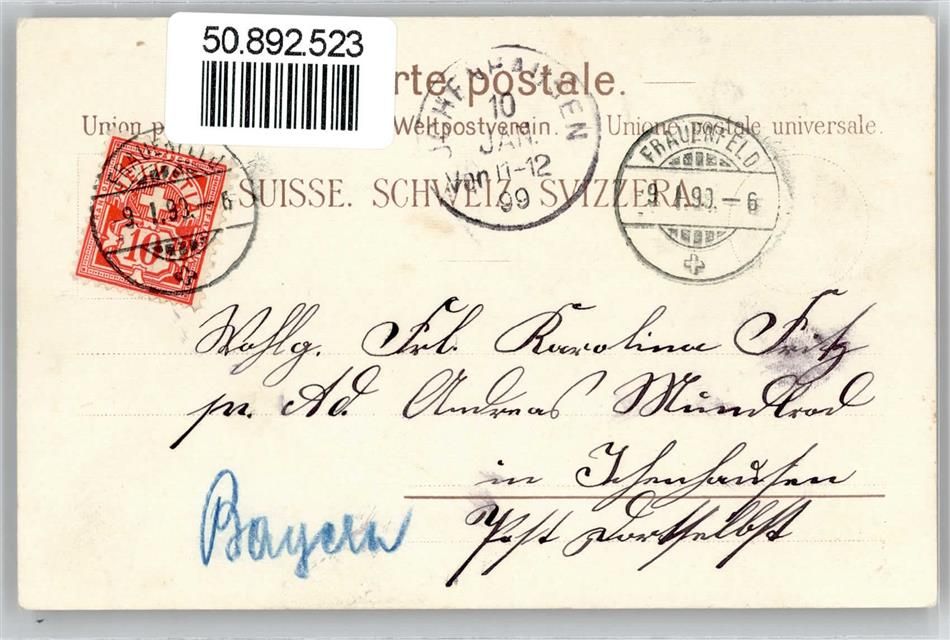 50.892.523
rte postale.
Union p Weltpostverein. Unione postale universale.
SUISSE. SCHWEIZ. SVIZZERA.
HELVETIA
10
9.I.99.–6
ICHENHAUSEN
10
JAN.
Vor 11-12
99
FRAUENFELD
9.I.99.–6
Wohlg. Frl. Karolina Fritz
pr. Ad. Andreas Mundkrod
in Ichenhausen
Post dortselbst
Bayern